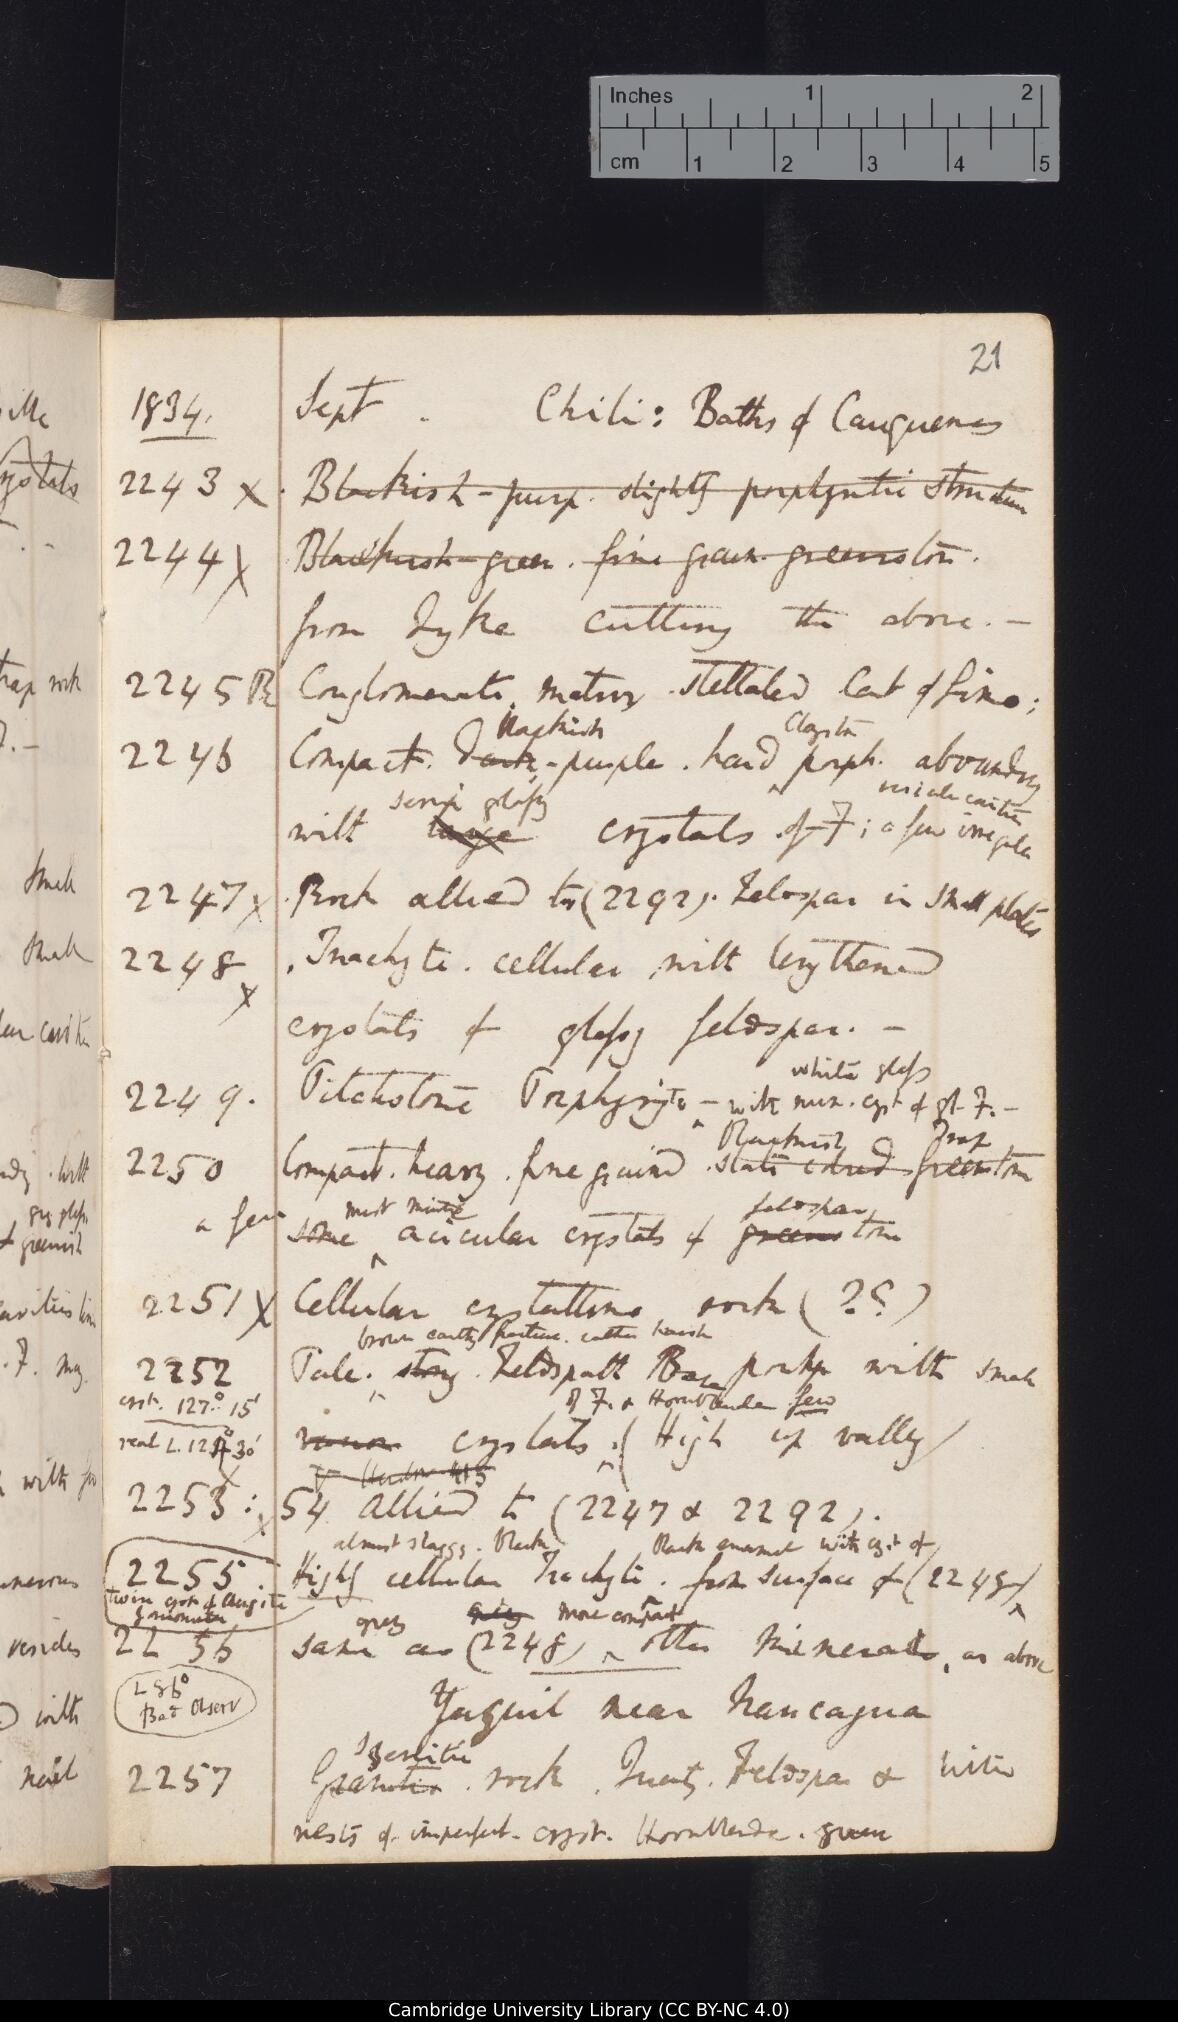 Inches 1 2
cm 1 2 3 4 5
21
1834. Sept. Chili: Baths of Cauquenes
2243 X Blackish-purp. slightly porphyritic structure
2244 X Blackish-green. fine grain. greenston.
from dyke cutting the above. —
2245 Conglomerate. matrix. stellated Carb of lime;
Blackish Clayston
2246 Compact. dark-purple. hard porph. abounding
semi glassy
with large crystals of F; a few irregular
2247 X Rock allied to (2292). Feldspar in small plates
2248 X Trachyte. cellular with lengthened
crystals of glassy feldspar. —
white glass
2249. Pitchstone Porphyry — with num. cryst of gl. F. —
Blackish Trap
2250 Compact. heavy. fine grained. slate colored greenstone
most minute feldspar
a few some acicular crystals of greenstone
2251 X Cellular crystalline rock (??)
brown earthy fracture. rather harsh
2252 Pale. stony. Feldspath Base porph with small
of F. & Hornblende few
crystals. (High up valley)
2253: 54 allied to (2247 & 2292).
almost slaggy. Black Black enamel with cryst of
2255 Highly cellular Trachyte. from surface of (2248)
twin cryst of Augite
grey grey more compact
2256 same as (2248) other minerals, as above
L 86°
Bad Observ
Yaquil near Nancagua
Syenitic
2257 Granitic. rock. Quartz. Feldspar & with
nests of imperfect. cryst. Hornblende. green
Cambridge University Library (CC BY-NC 4.0)